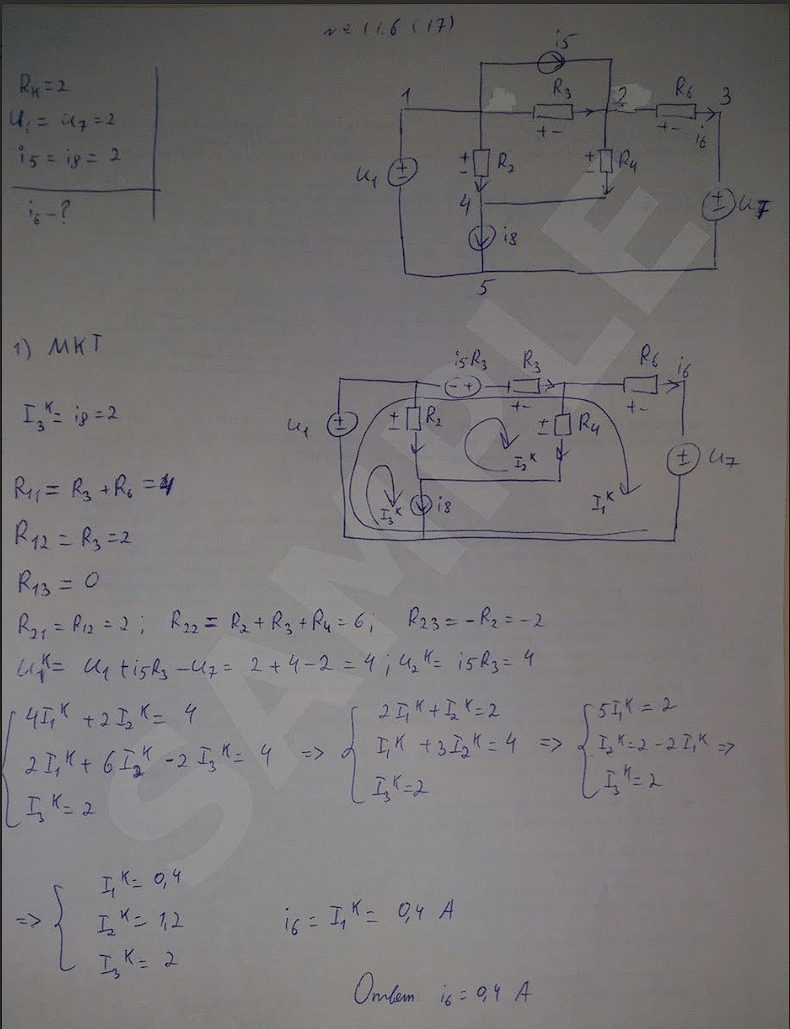 № 11.6 (17)
Rк=2
U₁ = U₇ = 2
i5 = i8 = 2
i₆ - ?
i5
1 R₃ 2 R₆ 3
+ - + - i₆
U₁ ± ± R₂ ± R₄ ± U₇
4
i8
5
1) МКТ
i5R₃ R₃ R₆ i₆
- + + - + -
U₁ ± ± R₂ ± R₄ ± U₇
I₂ᴷ
I₃ᴷ i8 I₁ᴷ
I₃ᴷ = i8 = 2
R₁₁ = R₃ + R₆ = 4
R₁₂ = R₃ = 2
R₁₃ = 0
R₂₁ = R₁₂ = 2 ; R₂₂ = R₂ + R₃ + R₄ = 6 ; R₂₃ = -R₂ = -2
U₁ᴷ = U₁ + i5R₃ - U₇ = 2 + 4 - 2 = 4 ; U₂ᴷ = i5R₃ = 4
{ 4I₁ᴷ + 2I₂ᴷ = 4 { 2I₁ᴷ + I₂ᴷ = 2 { 5I₁ᴷ = 2
2I₁ᴷ + 6I₂ᴷ - 2I₃ᴷ = 4 => I₁ᴷ + 3I₂ᴷ = 4 => I₂ᴷ = 2 - 2I₁ᴷ =>
I₃ᴷ = 2 I₃ᴷ = 2 I₃ᴷ = 2
=> { I₁ᴷ = 0,4
I₂ᴷ = 1,2 i₆ = I₁ᴷ = 0,4 А
I₃ᴷ = 2
Ответ i₆ = 0,4 А
SAMPLE